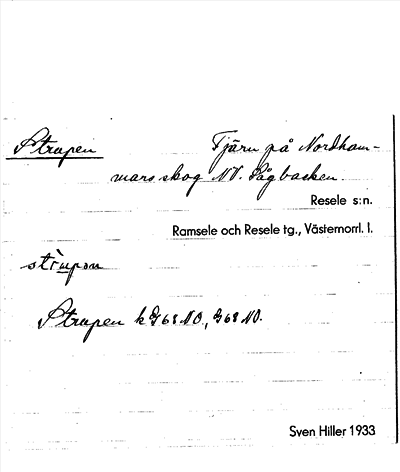 Strupen Tjärn på Nordham-
mars skog NV. Sågbacken
Resele s:n.
Ramsele och Resele tg., Västernorrl. l.
strùpən
Strupen k G68 NO., G68 NO.
Sven Hiller 1933